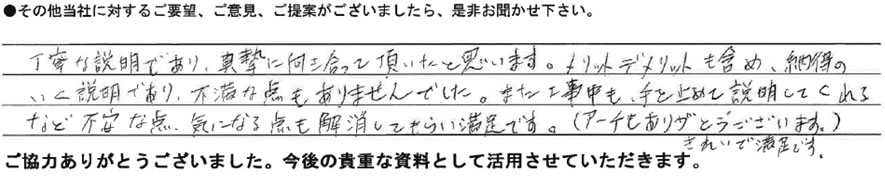 ●その他当社に対するご要望、ご意見、ご提案がございましたら、是非お聞かせ下さい。
丁寧な説明であり、真摯に向き合って頂いたと思います。メリットデメリットも含め、納得の
いく説明であり、不満な点もありませんでした。また工事中も、手を止めて説明してくれる
など不安な点、気になる点も解消してもらい満足です。(アーチもありがとうございます。)
きれいで満足です。
ご協力ありがとうございました。今後の貴重な資料として活用させていただきます。